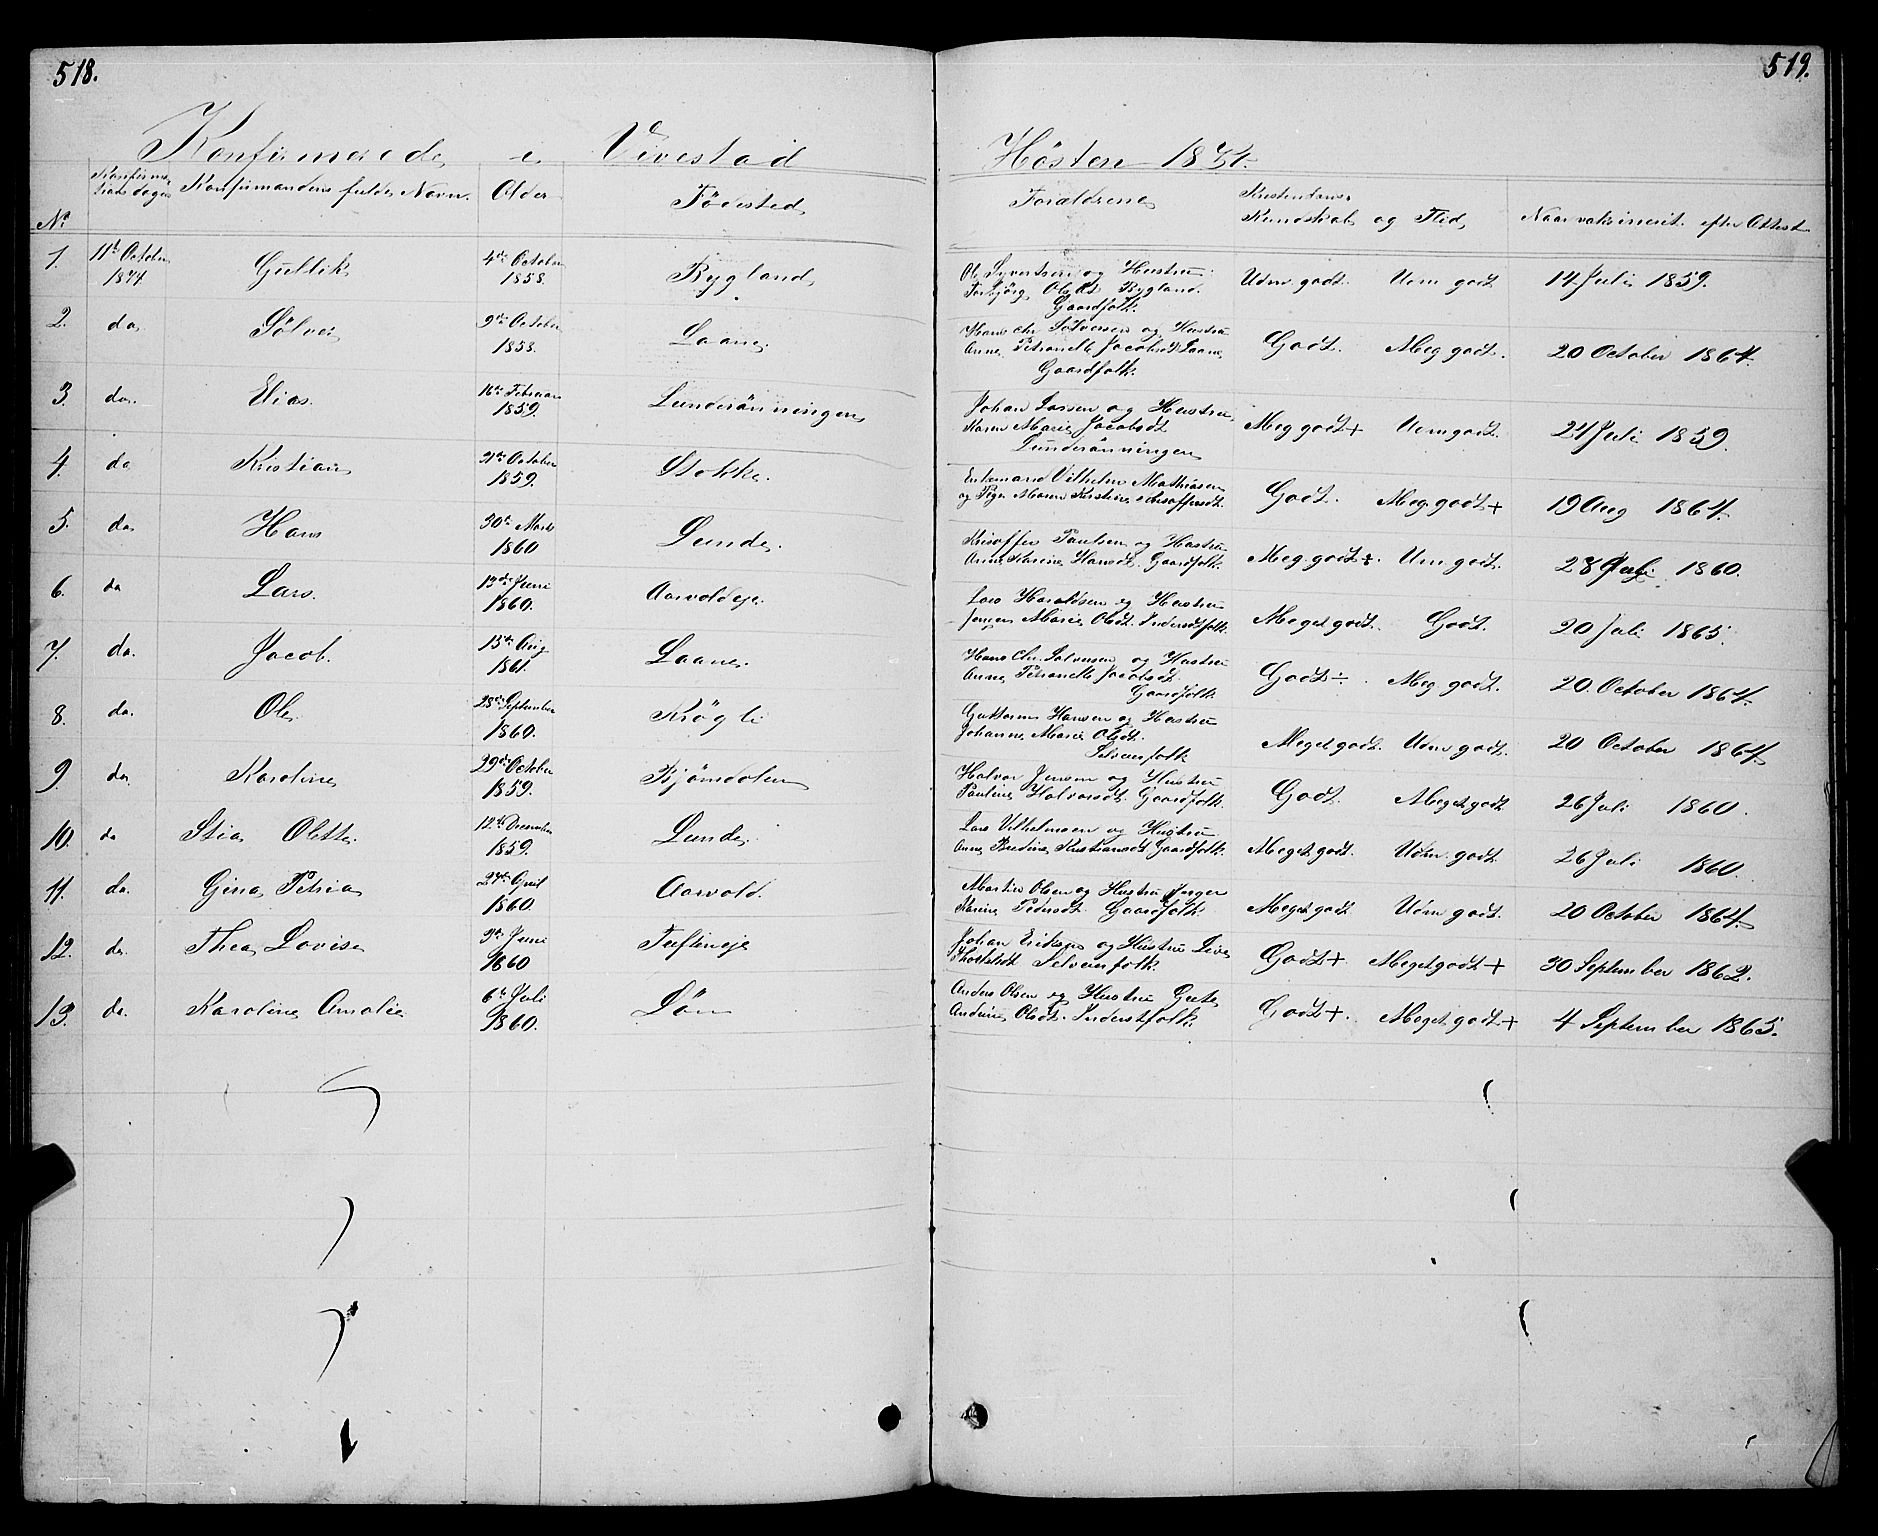 518.
519.
Konfirmerede i Vivestad Hösten 1874.
No Konfirma- tions dagen Konfirmandens fulde Navn. Alder Födested Forældrene Kristendoms- Kundskab og Flid Naar vaksineret efter Attest
1. 11te October 1874 Gullik 4de October 1858. Bygland Ole Syvertsen og Hustru Torbjörg Olsdt Bygland. Gaardfolk. Udm godt. Udm godt 14 Juli 1859.
2. do Sölver 9de October 1858. Laane. Hans Chr Sölversen og Hustru Anne Petronelle Jacobsdt Laane Gaardfolk. Godt. Meg godt. 20 October 1864.
3. do. Elias. 16de Februar 1859. Lunderönningen Johan Larsen og Hustru Karen Marie Jacobsdt Lunderönningen Meg godt+ Udm godt. 21 Juli 1859.
4. do Kristian 31te October 1859. Stokke. Enkemand Vilhelm Mathiasen og Pige Maren Kirstine Kristoffersdt. Godt. Meg. godt+ 19 Aug 1864.
5. do. Hans 30te Marts 1860 Lunde. Kristoffer Paulsen og Hustru Anne Karine Hansdt. Gaardfolk. Meg. godt÷. Udm godt. 28 Juli 1860.
6. do Lars. 13de Juni 1860. Aarvoldeje. Lars Haraldsen og Hustru Jørgen Marie Olsdt. Inderstfolk. Meget godt. Godt. 20 Juli 1865.
7. do. Jacob. 15de Aug 1861. Laane. Hans Chr. Sölversen og Hustru Anne Petronelle Jacobsdt. Gaardfolk. Godt÷. Meg godt. 20. October 1864.
8. do. Ole. 28de September 1860. Krögli Guttorm Hansen og Hustru Johanne Marie Olsdt. Selveierfolk Meget godt. Udm godt. 20 October 1864.
9. do. Karoline 29de October 1859. Bjørndalen Halvor Jensen og Hustru Pauline Halvorsdt. Gaardfolk. Godt. Meget godt 26 Juli 1860.
10. do Stia Olette. 12te December 1859. Lunde. Lars Vilhelmsen og Hustru Anne Bredine Kristiansdt Gaardfolk. Meget godt. Udm godt. 26 Juli 1860.
11. do. Gina Petria 24de April 1860. Aarvold. Martin Olsen og Hustru Inger Karine Pedersdt. Gaardfolk. Meget godt Udm godt. 20 October 1864.
12. do. Thea Lovise 3die Juni 1860 Tufteneje Johan Eriksen og Hustru Live Selveierfolk. Godt+ Meget godt+ 30 September 1862.
13. do. Karoline Amalie 6te Juli 1860. Lön Anders Olsen og Hustru Grete Andrine Olsdt. Inderstfolk. Godt+. Meget godt+ 4 September 1865.